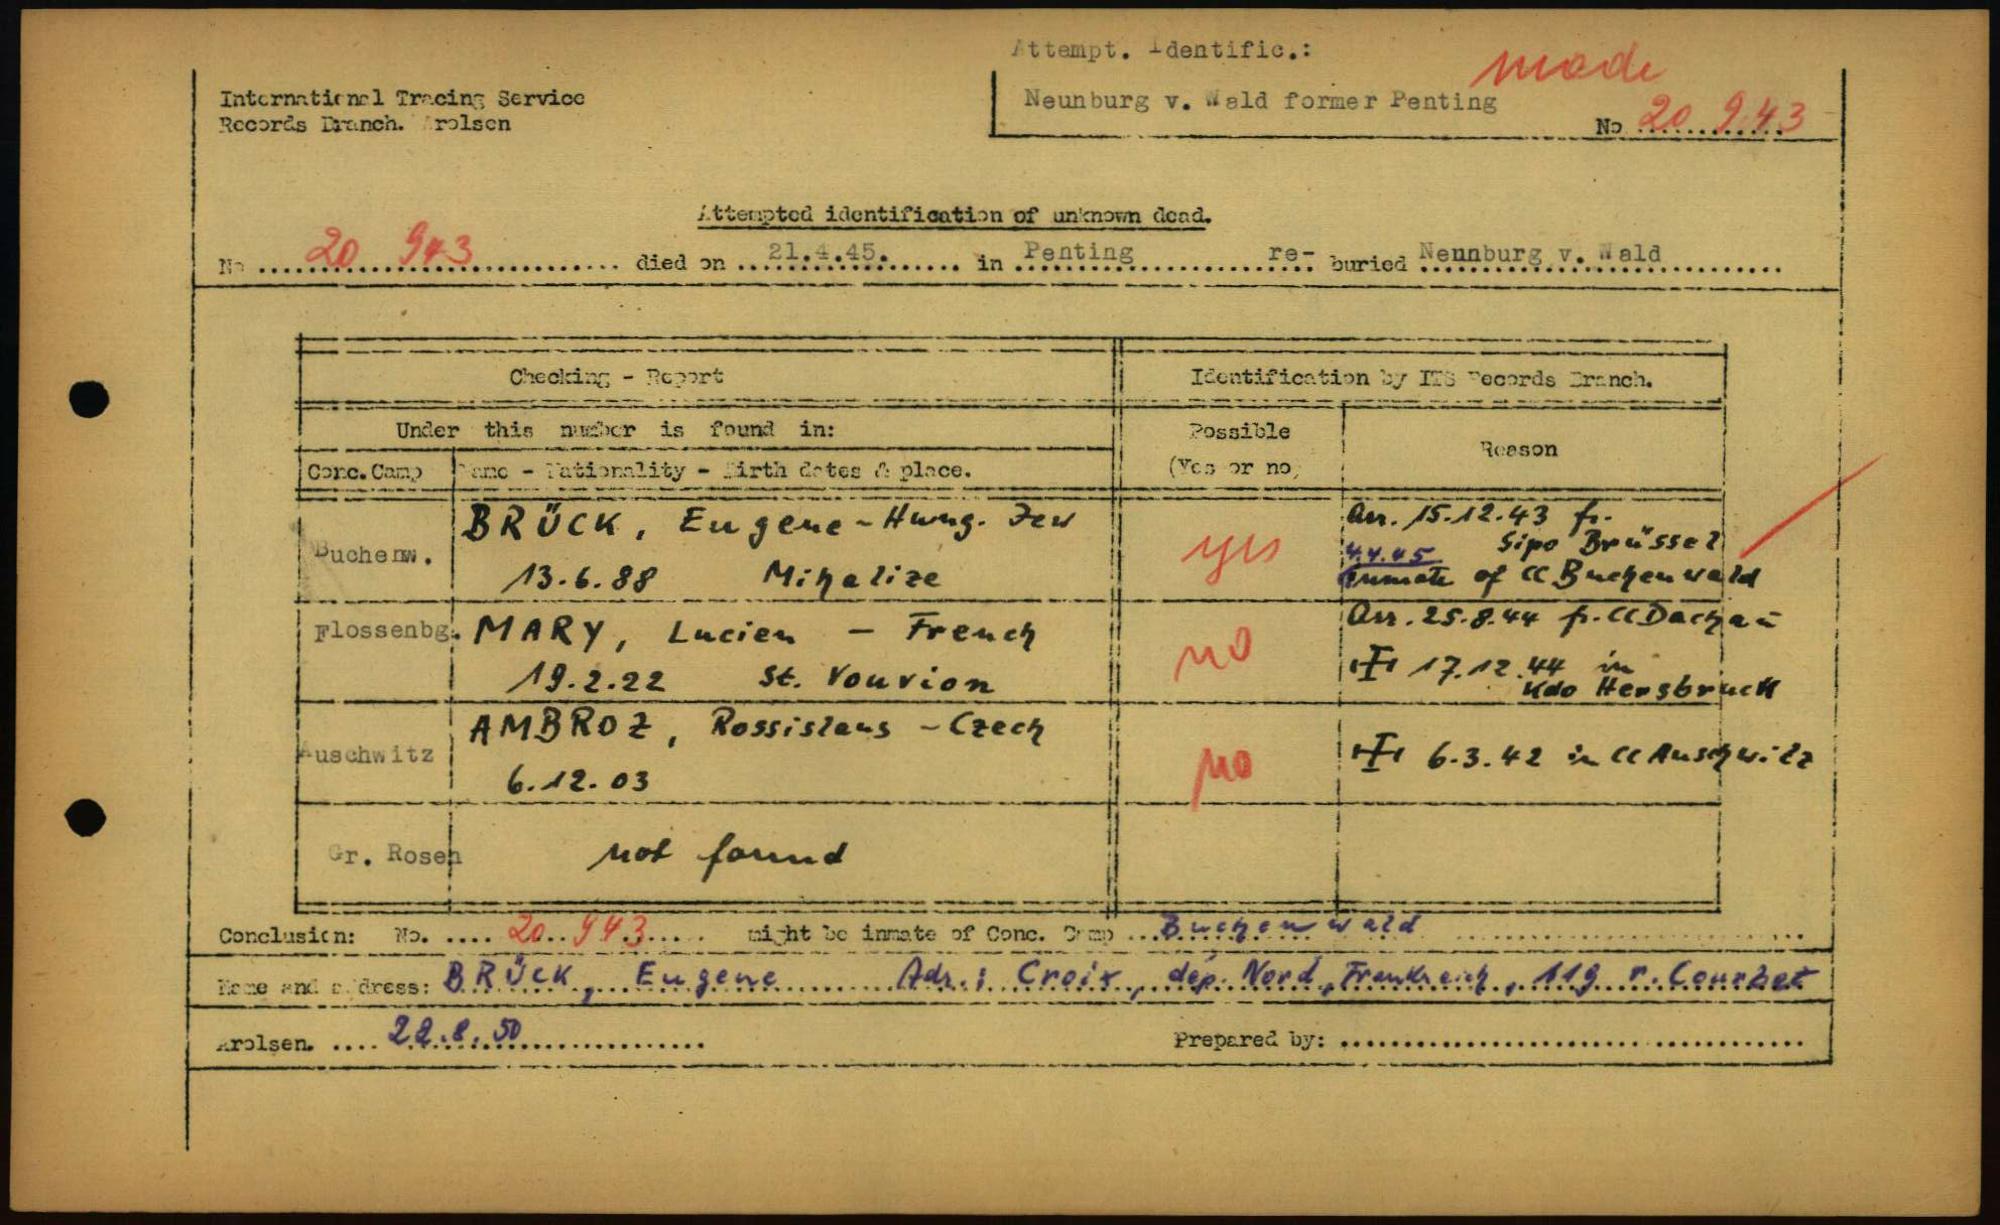 Attempt. Identific.:
made
International Tracing Service
Neunburg v. Wald former Penting
Records Branch. Arolsen
No 20 943
Attempted identification of unknown dead.
No 20 943 died on 21.4.45. in Penting re- buried Neunburg v. Wald
Checking - Report Identification by ITS Records Branch.
Under this number is found in: Possible (Yes or no) Reason
Conc.Camp Name - Nationality - Birth dates & place.
Buchenw. BRÜCK, Eugene - Hung. Jew yes Arr. 15.12.43 fr.
Sipo Brüssel
13.6.88 4.4.45
inmate of CC Buchenwald
Flossenbg. MARY, Lucien - French no Arr. 25.8.44 fr. CC Dachau
19.2.22 St. Vouvion 17.12.44 in
Kdo Hersbruck
Auschwitz AMBROZ, Rossislaus - Czech no 6.3.42 in CC Auschwitz
6.12.03
Gr. Rosen not found
Conclusion: No. 20 943 might be inmate of Conc. Camp Buchenwald
Name and address: BRÜCK, Eugene Adr.: Croix, dép. Nord, Frankreich, 119 r. Courbet
Arolsen. 22.8.50 Prepared by: